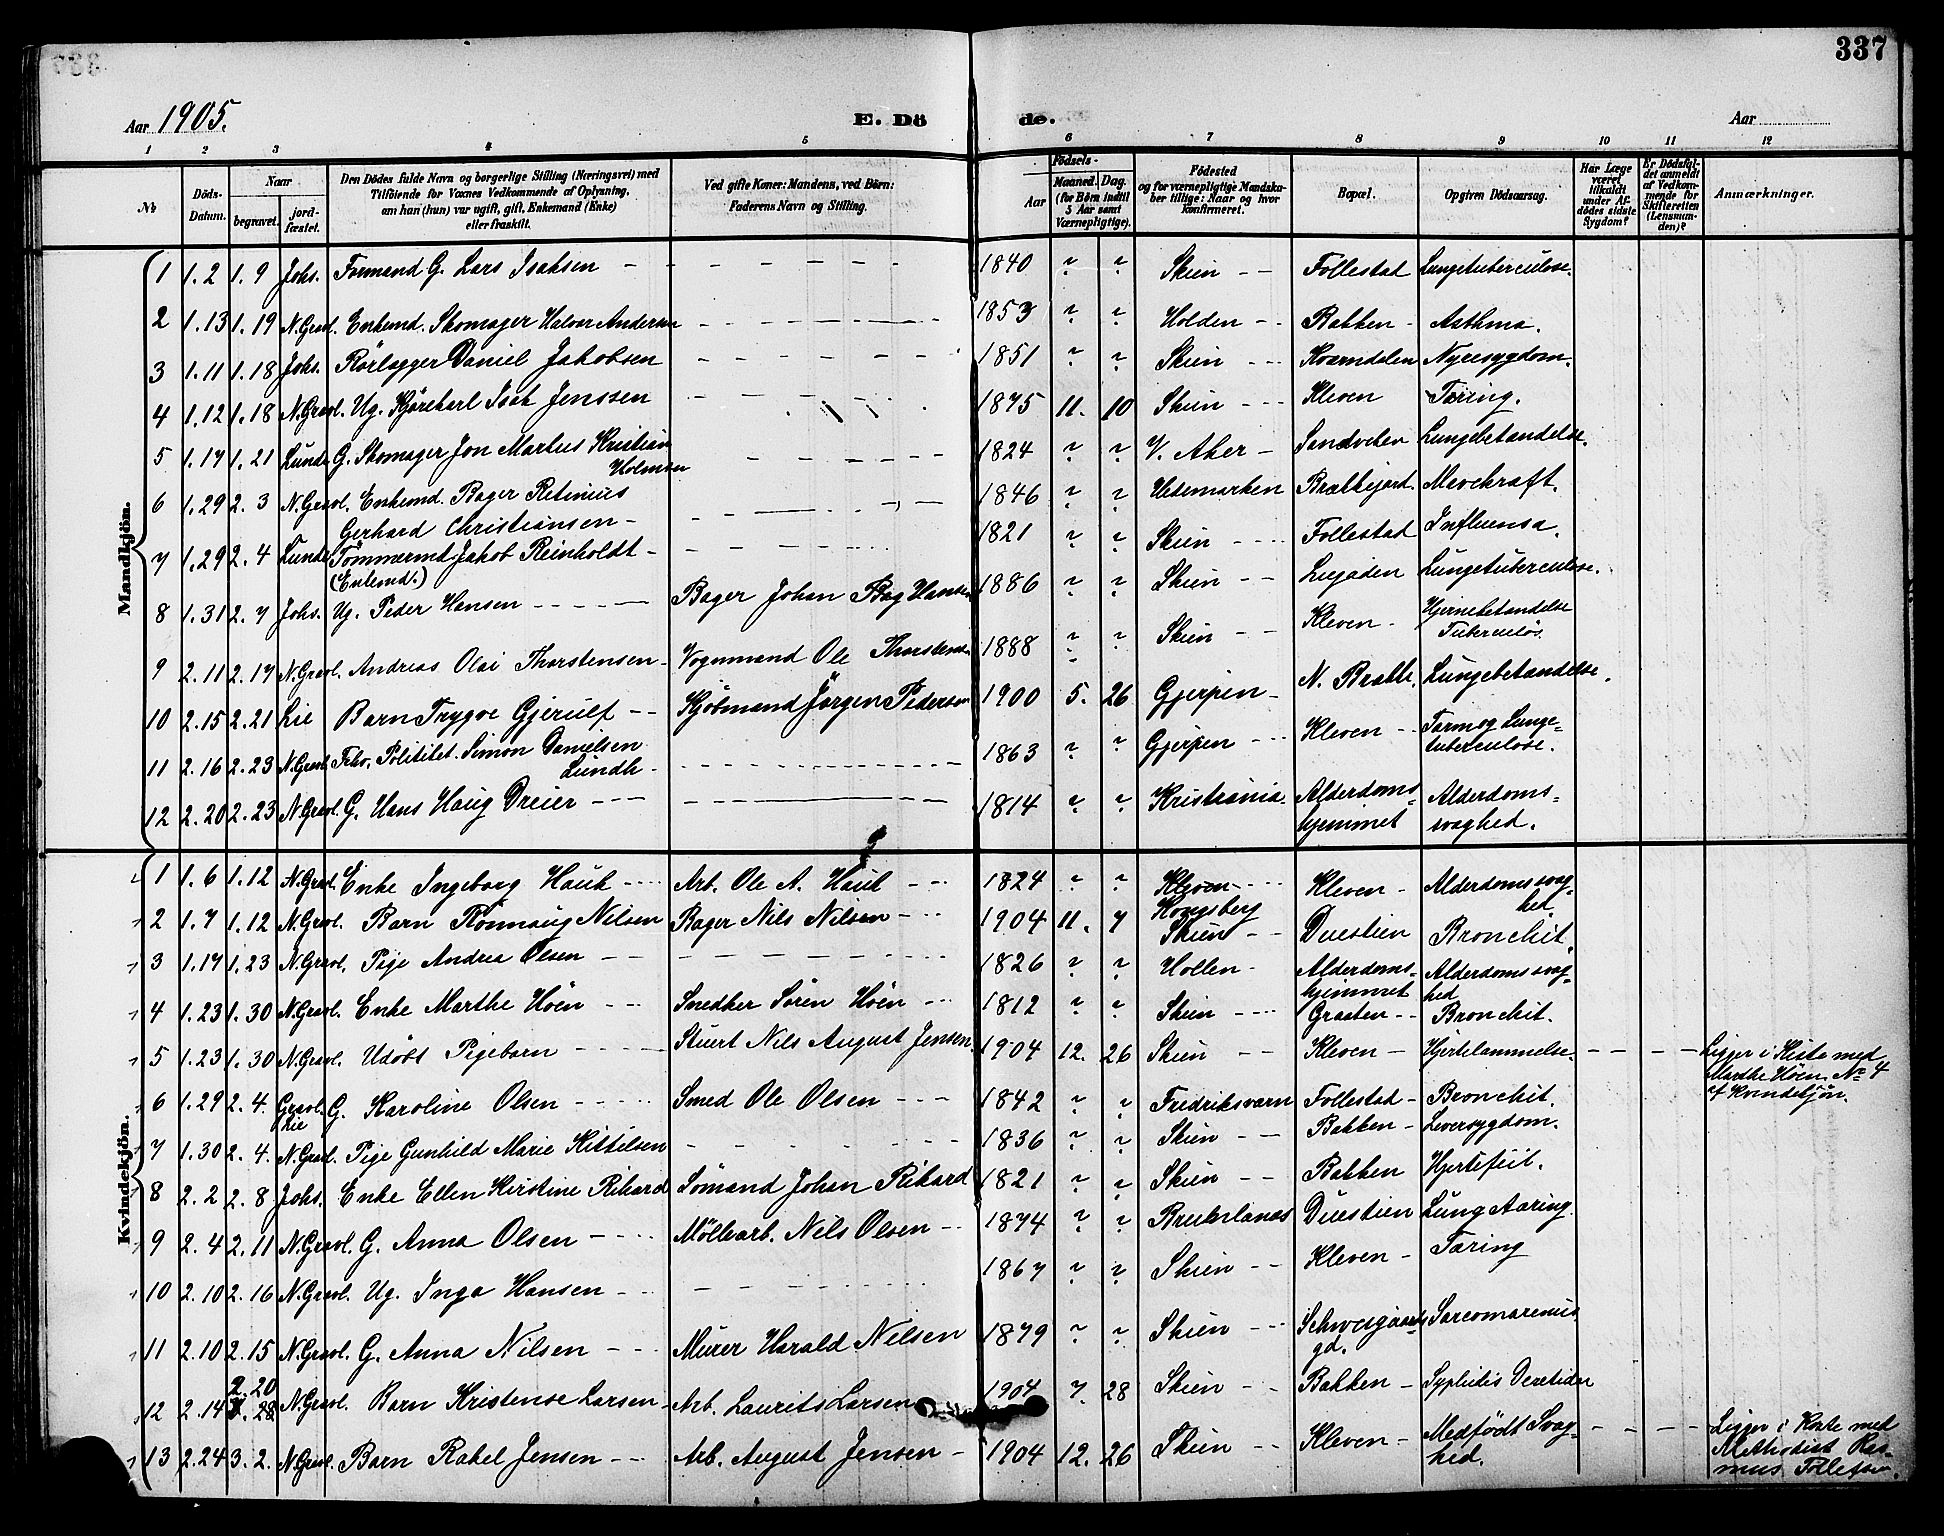 337
Aar 1905.
E. Dö de.
Aar
1 2 3 4 5 6 7 8 9 10 11 12
№
Döds-Datum.
Naar
begravet.
jord-fæstet.
Den Dödes fulde Navn og borgerlige Stilling (Næringsvei) med
Tilföiende for Voxnes Vedkommende af Oplysning,
om han (hun) var ugift, gift, Enkemand (Enke)
eller fraskilt.
Ved gifte Koner: Mandens, ved Börn:
Faderens Navn og Stilling.
Födsels-
Aar
Maaned. Dag.
(for Börn indtil
5 Aar samt
Værnepligtige).
Födested
og for værnepligtige Mandska-
ber tillige: Naar og hvor
konfirmeret.
Bopæl.
Opgiven Dödsaarsag.
Har Læge
været
tilkaldt
under Af-
dödes sidste
Sygdom?
Er Dödsfal-
det anmeldt
af Vedkom-
mende for
Skifteretten
(Lensman-
den)?
Anmærkninger.
Mandkjön.
1 1.2 1.9 Johs. Formand G. Lars Isaksen 1840 ? ? Skien Follestad Lungetuberculose.
2 1.13 1.19 N.Gravl. Enkemd. Skomager Halvor Andersen 1853 ? ? Holden Bakken Asthma.
3 1.11 1.18 Johs. Rörlægger Daniel Jakobsen 1851 ? ? Skien Kværndalen Nyresygdom.
4 1.12 1.18 N.Gravl. Ug. Kjörekarl Isak Jenssen 1875 11. 10 Skien Kleven Tæring.
5 1.17 1.21 Lunde G. Skomager Jon Martius Kristian
Holman 1824 ? ? V. Aker Lungebetændelse.
6 1.29 2.3 N.Gravl. Enkemd. Bager Retinius
Gerhard Christiansen 1846 ? ? Hedemarken Brækkejord. Mavekræft.
7 1.29 2.4 Lunde Tömmermd. Jakob Reinholdt
(Enkemd.) 1821 ? ? Skien Follestad Influensa.
8 1.31 2.7 Johs. Ug. Peder Hansen Bager Johan Hansen 1886 ? ? Skien Liegaden Lungetuberculose.
9 2.11 2.17 N.Gravl. Andreas Olai Thorstensen Vognmand Ole Thorstensen 1888 ? ? Skien Kleven Hjernebetændelse
Tuberculös
10 2.15 2.21 Lie Barn Trygve Gjerulf Kjöbmand Jörgen Pedersen 1900 5. 26 Gjerpen N. Brække. Lungebetændelse.
11 2.16 2.23 N.Gravl. Fhv. Politibet. Simon Danielsen
Lundh 1863 ? ? Gjerpen Kleven Tarm og Lunge-
tuberculose.
12 2.20 2.23 N.Gravl. G. Hans Haug Dreier 1814 ? ? Kristiania. Alderdoms-
hjemmet Alderdoms-
svaghed.
Kvindekjön.
1 1.6 1.12 N.Gravl. Enke Ingeborg Hauk Arb. Ole A. Hauk 1824 ? ? Kleven
Kongsberg Kleven Alderdomssvag-
hed
2 1.7 1.12 N.Gravl. Barn Rönnaug Nilsen Bager Nils Nilsen 1904 11. 7 Skien Duestien Bronchit.
3 1.17 1.23 N.Gravl. Pige Andrea Olsen 1826 ? ? Hollen Alderdoms-
hjemmet Alderdomssvag-
hed
4 1.23 1.30 N.Gravl. Enke Marthe Höen Snedker Sören Höen 1812 ? ? Skien Graaten Bronchit.
5 1.23 1.30 N.Gravl. Udöbt Pigebarn Stuert Nils August Jensen 1904 12. 26 Skien Kleven Hjertelammelse. Ligger i Kiste med
Marthe Höen No 4
af Kvindekjön.
6 1.29 2.4. Gravl.
Lie G. Karoline Olsen Smed Ole Olsen 1842 ? ? Fredriksværn Follestad Bronchit.
7 1.30 2.4. N.Gravl. Pige Gunhild Marie Kittilsen 1836 ? ? Skien Bakken Leversygdom.
8 2.2 2.8 Johs. Enke Ellen Kirstine Rikard Sömand Johan Rikard 1821 ? ? Skien Bakken Hjertefeil.
9 2.4 2.11 N.Gravl. G. Anna Olsen Möllearb. Nils Olsen 1874 ? ? Brunlanæs Duestien Lungtæring.
10 2.10 2.16 N.Gravl. Ug. Inga Hansen 1867 ? ? Skien Kleven Tæring
11 2.10 2.15 N.Gravl. G. Anna Nilsen Murer Harald Nilsen 1879 ? ? Skien Schweigaards
gd.
12 2.14 2.20 N.Gravl. Barn Kristense Larsen Arb. Laurits Larsen 1904 7. 28 Skien Bakken
13 2.24 3.2. N.Gravl. Barn Rakel Jensen Arb. August Jensen 1904 12. 26 Skien Kleven Medfödt Svag-
hed. Ligger i Kiste med
Methodist Ras-
mus Tollefsen.